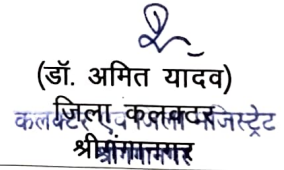 (डॉ. अमित यादव)
जिला कलक्टर
कलक्टर एवं जिला मजिस्ट्रेट
श्रीगंगानगर
श्रीगंगानगर